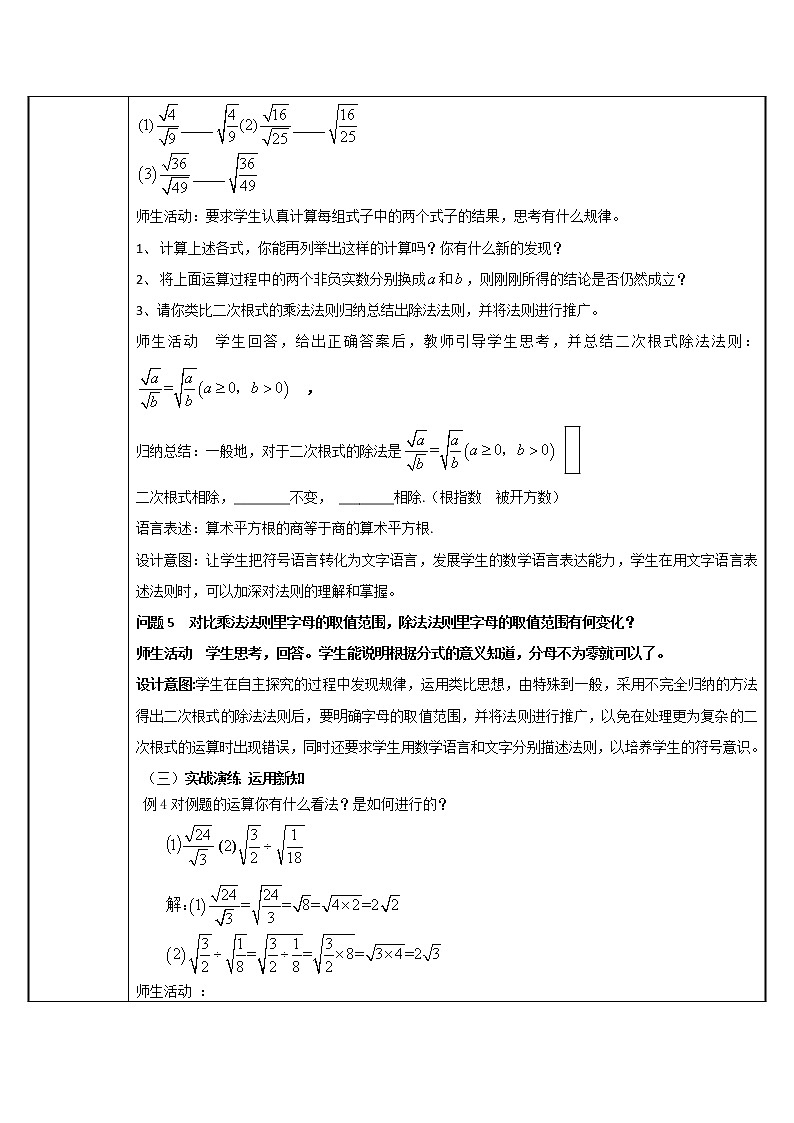 (1) √4/√9 ____ √(4/9) (2) √16/√25 ____ √(16/25)
(3) √36/√49 ____ √(36/49)
师生活动：要求学生认真计算每组式子中的两个式子的结果，思考有什么规律。
1、 计算上述各式，你能再列举出这样的计算吗？你有什么新的发现？
2、 将上面运算过程中的两个非负实数分别换成a和b，则刚刚所得的结论是否仍然成立？
3、请你类比二次根式的乘法法则归纳总结出除法法则，并将法则进行推广。
师生活动　学生回答，给出正确答案后，教师引导学生思考，并总结二次根式除法法则：
√a/√b=√(a/b) (a≥0，b>0) ，
归纳总结：一般地，对于二次根式的除法是 √a/√b=√(a/b) (a≥0，b>0)
二次根式相除，________不变，________相除.（根指数　被开方数）
语言表述：算术平方根的商等于商的算术平方根.
设计意图：让学生把符号语言转化为文字语言，发展学生的数学语言表达能力，学生在用文字语言表
述法则时，可以加深对法则的理解和掌握。
问题5　对比乘法法则里字母的取值范围，除法法则里字母的取值范围有何变化？
师生活动　学生思考，回答。学生能说明根据分式的意义知道，分母不为零就可以了。
设计意图:学生在自主探究的过程中发现规律，运用类比思想，由特殊到一般，采用不完全归纳的方法
得出二次根式的除法法则后，要明确字母的取值范围，并将法则进行推广，以免在处理更为复杂的二
次根式的运算时出现错误，同时还要求学生用数学语言和文字分别描述法则，以培养学生的符号意识。
（三）实战演练 运用新知
例4 对例题的运算你有什么看法？是如何进行的？
(1) √24/√3 (2) √(3/2) ÷ √(1/18)
解:(1) √24/√3=√(24/3)=√8=√(4×2)=2√2
(2) √(3/2) ÷ √(1/8)=√(3/2÷1/8)=√(3/2×8)=√(3×4)=2√3
师生活动 ：